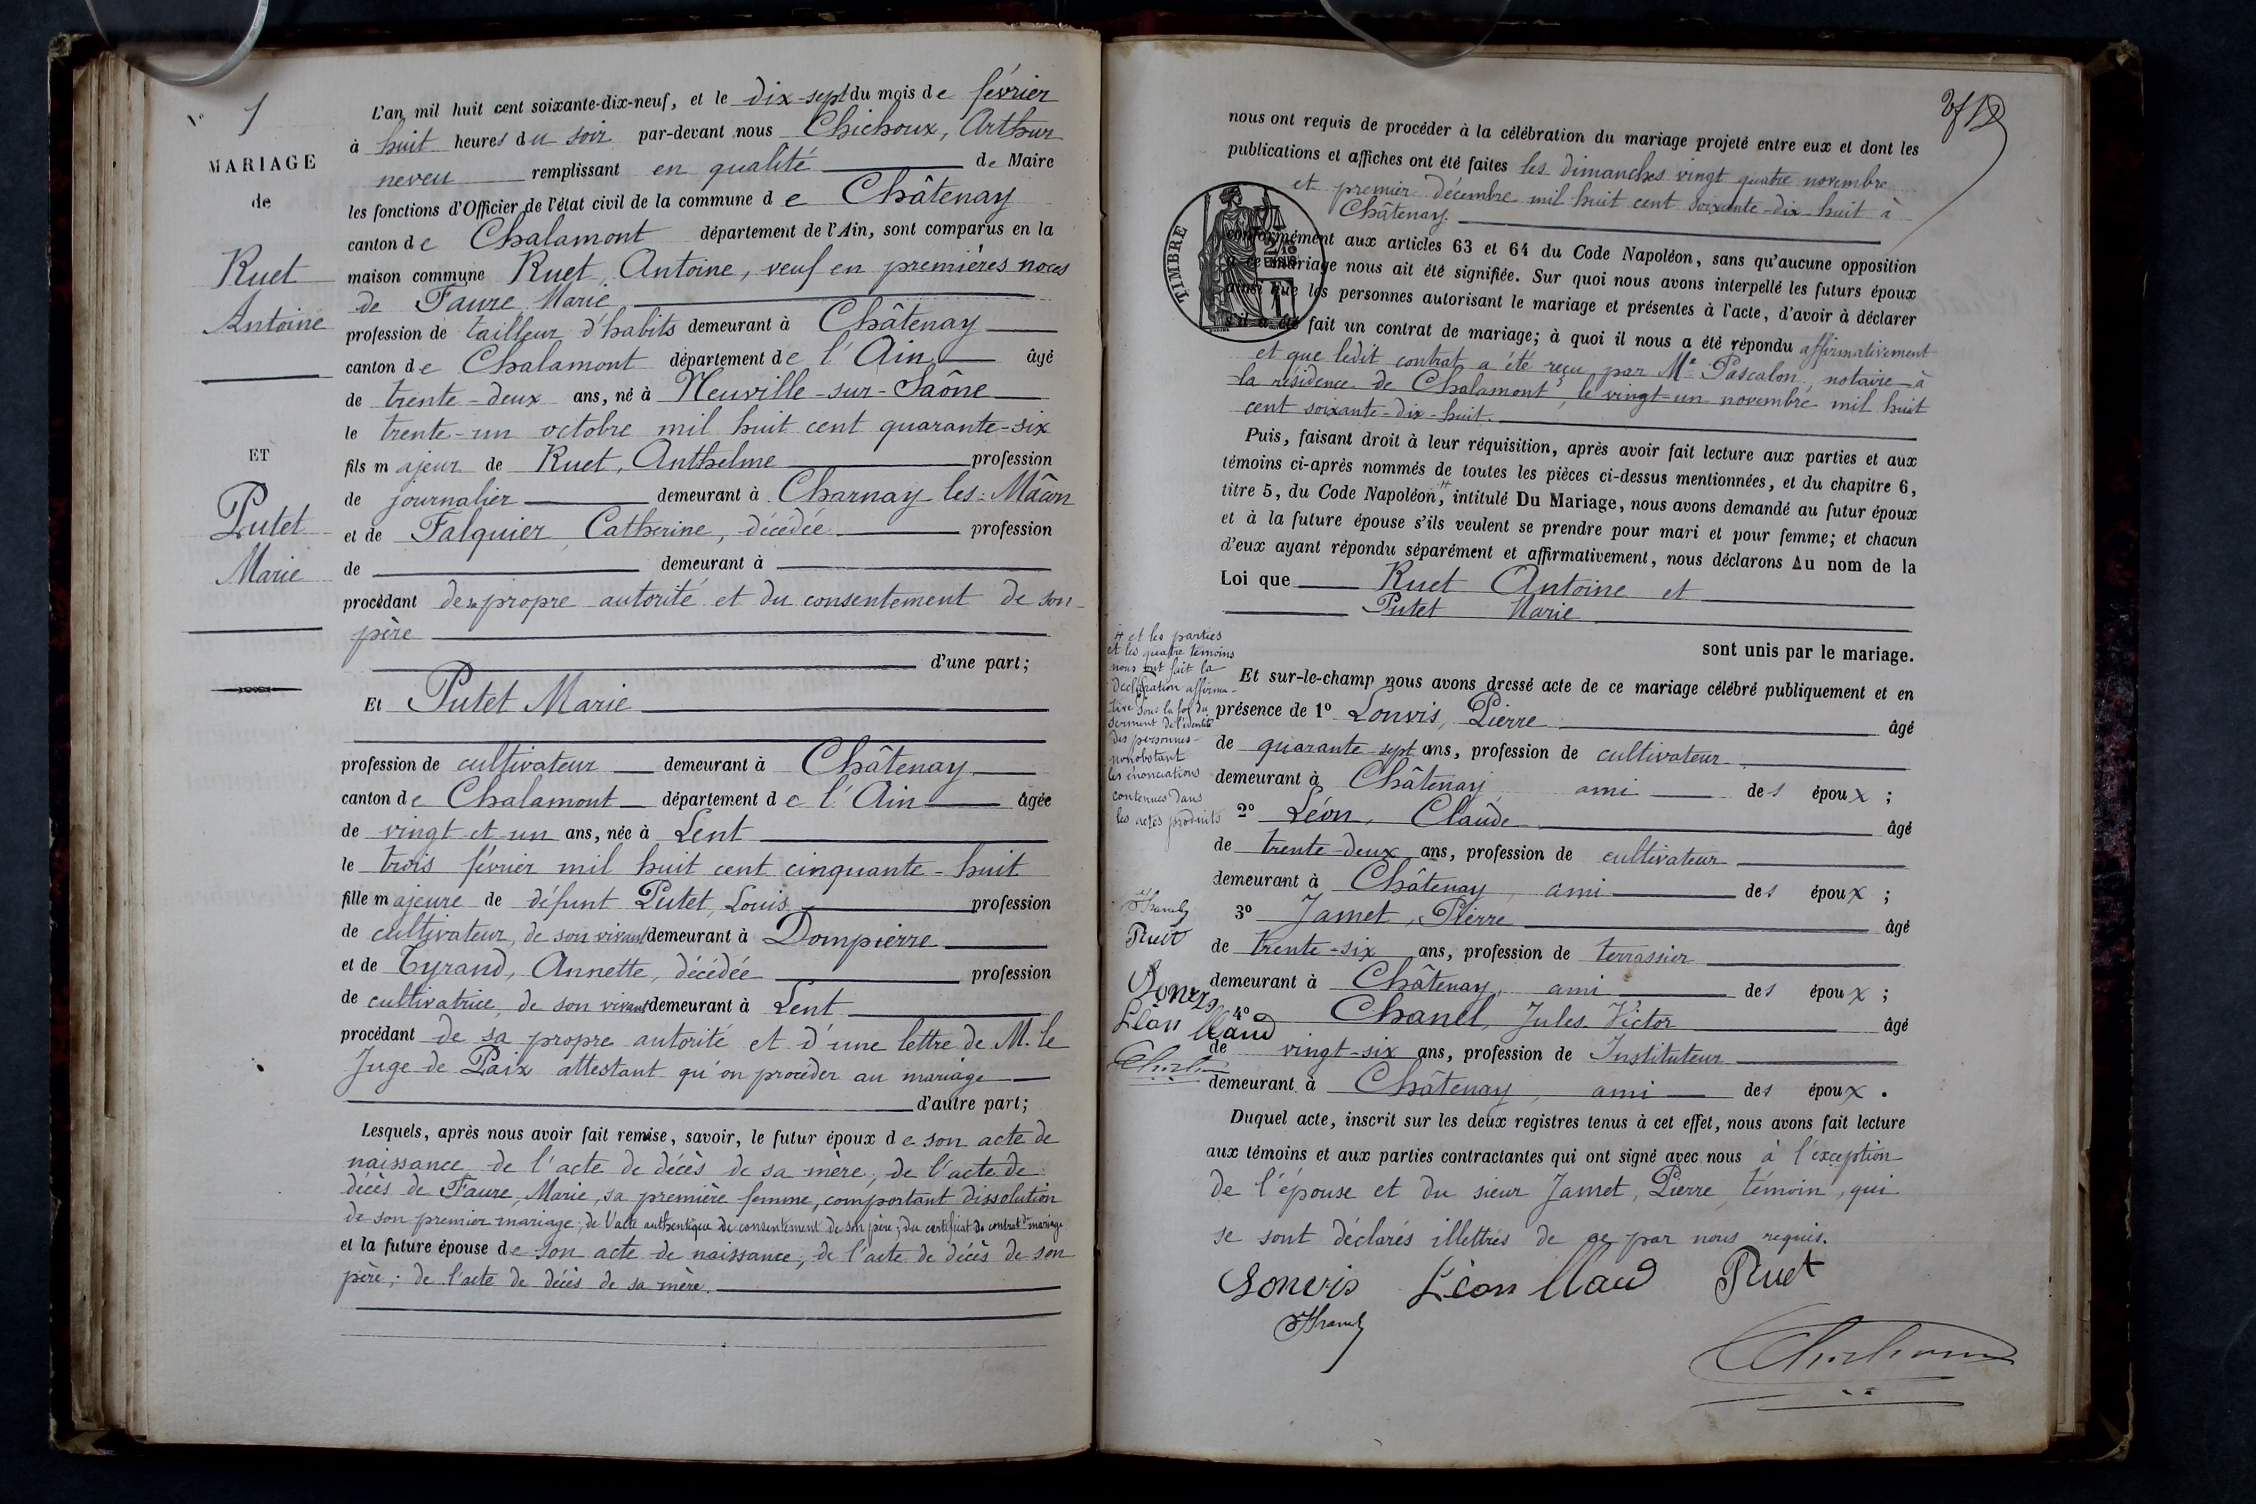 N° 1
MARIAGE
de
Ruet
Antoine
ET
Putet
Marie
L'an mil huit cent soixante-dix-neuf, et le dix-sept du mois de février
à huit heures du soir par-devant nous Chichoux, Arthur
neveu remplissant en qualité de Maire
les fonctions d'Officier de l'état civil de la commune de Châtenay
canton de Chalamont département de l'Ain, sont comparus en la
maison commune Ruet, Antoine, veuf en premières noces
de Faure, Marie,
profession de tailleur d'habits demeurant à Châtenay
canton de Chalamont département de l'Ain âgé
de trente-deux ans, né à Neuville-sur-Saône
le trente-un octobre mil huit cent quarante-six
fils majeur de Ruet, Anthelme profession
de journalier demeurant à Charnay-les-Mâcon
et de Falquier, Catherine, décédée profession
de demeurant à
procédant de sa propre autorité et du consentement de son
père
d'une part;
Et Putet Marie
profession de cultivateur demeurant à Châtenay
canton de Chalamont département de l'Ain âgée
de vingt et un ans, née à Lent
le trois février mil huit cent cinquante-huit
fille majeure de défunt Putet, Louis profession
de cultivateur, de son vivant demeurant à Dompierre
et de Tyrand, Annette, décédée profession
de cultivatrice, de son vivant demeurant à Lent
procédant de sa propre autorité et d'une lettre de M. le
Juge de Paix attestant qu'on procéder au mariage
d'autre part;
Lesquels, après nous avoir fait remise, savoir, le futur époux de son acte de
naissance, de l'acte de décès de sa mère, de l'acte de
décès de Faure, Marie, sa première femme, comportant dissolution
de son premier mariage; de l'acte authentique de consentement de son père; du certificat de contrat de mariage
et la future épouse de son acte de naissance; de l'acte de décès de son
père; de l'acte de décès de sa mère.
nous ont requis de procéder à la célébration du mariage projeté entre eux et dont les
publications et affiches ont été faites les dimanches vingt quatre novembre
et premier décembre mil huit cent soixante-dix-huit à
Châtenay.
TIMBRE
conformément aux articles 63 et 64 du Code Napoléon, sans qu'aucune opposition
à ce mariage nous ait été signifiée. Sur quoi nous avons interpellé les futurs époux
ainsi que les personnes autorisant le mariage et présentes à l'acte, d'avoir à déclarer
s'il a été fait un contrat de mariage; à quoi il nous a été répondu affirmativement
et que ledit contrat a été reçu par Me Pascalon, notaire à
la résidence de Chalamont, le vingt-un novembre mil huit
cent soixante-dix-huit.
Puis, faisant droit à leur réquisition, après avoir fait lecture aux parties et aux
témoins ci-après nommés de toutes les pièces ci-dessus mentionnées, et du chapitre 6,
titre 5, du Code Napoléon, # intitulé Du Mariage, nous avons demandé au futur époux
et à la future épouse s'ils veulent se prendre pour mari et pour femme; et chacun
d'eux ayant répondu séparément et affirmativement, nous déclarons Au nom de la
Loi que Ruet Antoine et
Putet Marie
sont unis par le mariage.
# et les parties
et les quatre témoins
nous ont fait la
déclaration affirma-
tive sous la foi du
serment de l'identité
des personnes
nonobstant
les énonciations
contenues dans
les actes produits
Ruet
Léon Claud
Et sur-le-champ nous avons dressé acte de ce mariage célébré publiquement et en
présence de 1° Louvis, Pierre âgé
de quarante-sept ans, profession de cultivateur
demeurant à Châtenay ami des époux;
2° Léon, Claude âgé
de trente-deux ans, profession de cultivateur
demeurant à Châtenay, ami des époux;
3° Jamet, Pierre âgé
de trente-six ans, profession de terrassier
demeurant à Châtenay, ami des époux;
4° Chanel, Jules Victor âgé
de vingt-six ans, profession de Instituteur
demeurant à Châtenay, ami des époux.
Duquel acte, inscrit sur les deux registres tenus à cet effet, nous avons fait lecture
aux témoins et aux parties contractantes qui ont signé avec nous à l'exception
de l'épouse et du sieur Jamet, Pierre, témoin, qui
se sont déclarés illettrés de ce par nous requis.
Louvis Léon Claud Ruet